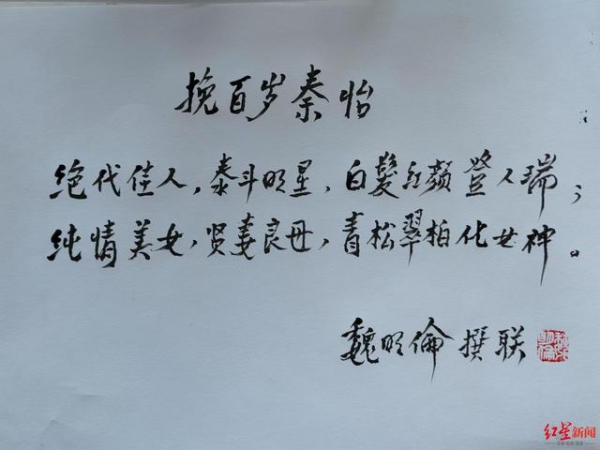 挽百岁秦怡
绝代佳人，泰斗明星，白髮红颜登人瑞；
纯情美女，贤妻良母，青松翠柏化女神。
魏明倫 撰联
红星新闻